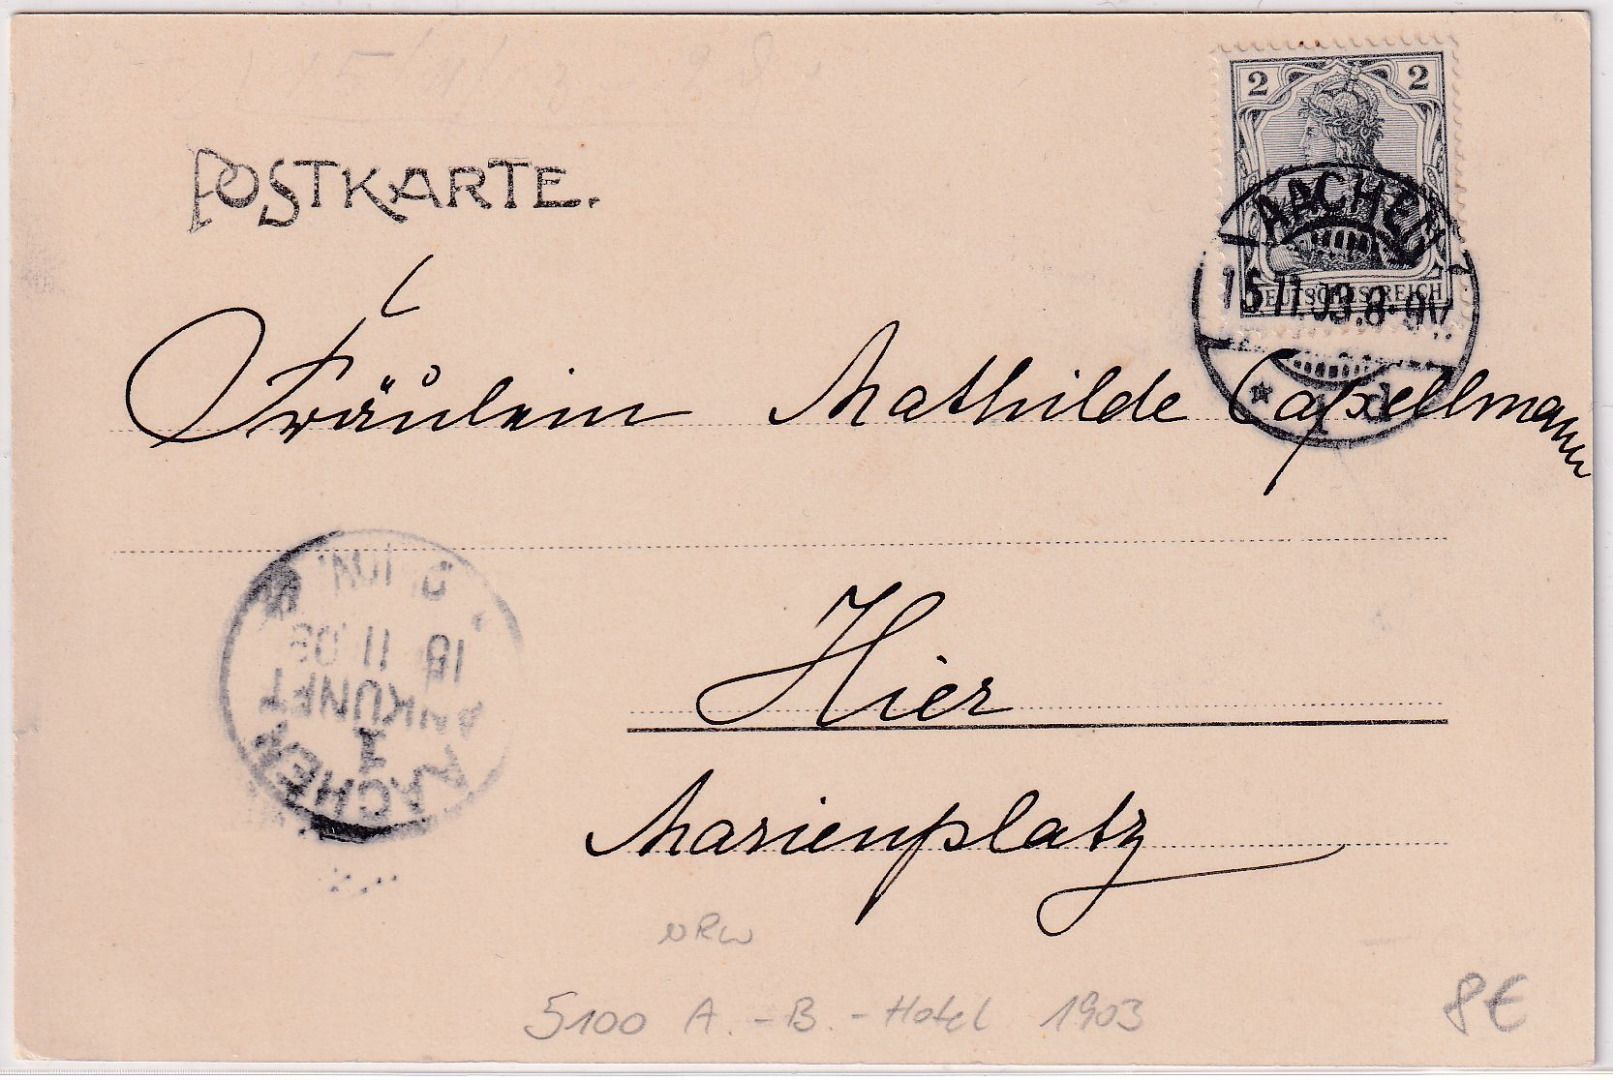 POSTKARTE.
2 2
DEUTSCHES REICH
AACHEN
11.03.8-9V.
* 1 d
Fräulein Mathilde Capellmann
AACHEN
1
ANKUNFT
11 03
Hier
Marienplatz
NRW
5100 A. - B. - Hotel 1903
8€